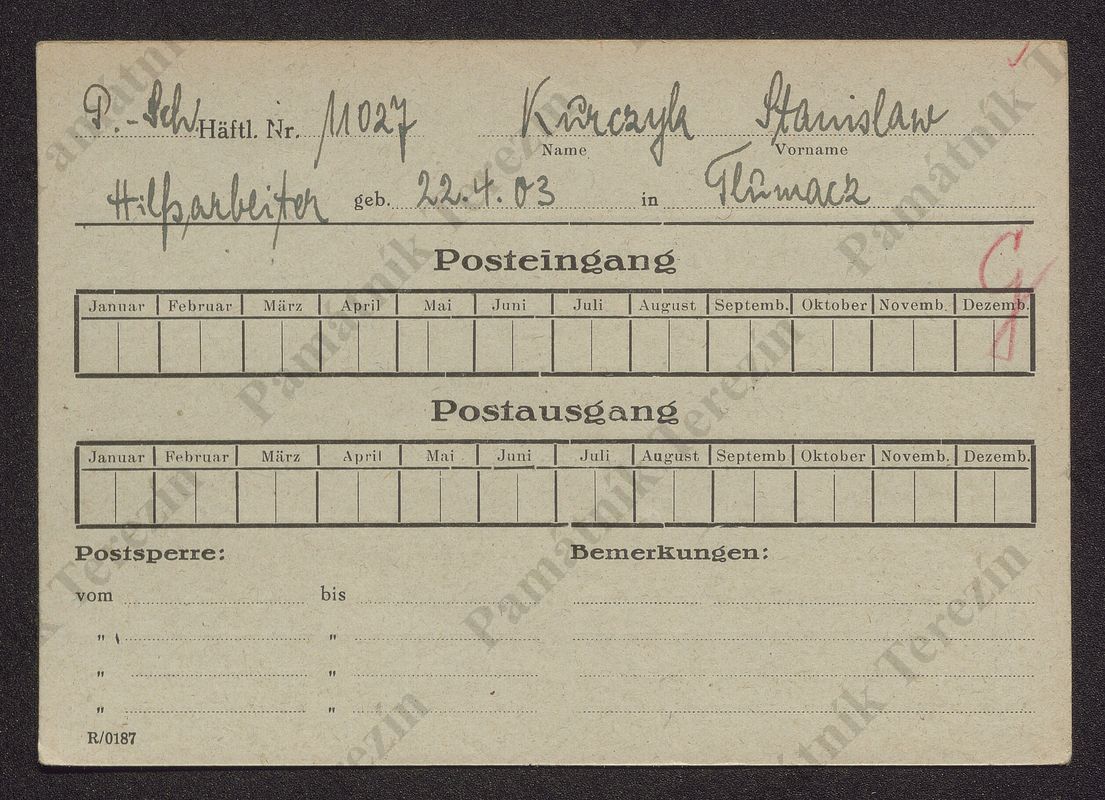 P.-Sch Häftl. Nr. 11027 Kurczyk Stanislaw
Name Vorname
Hilfsarbeiter geb. 22.4.03 in Tlumacz
Posteingang
Januar Februar März April Mai Juni Juli August Septemb. Oktober Novemb. Dezemb.
Postausgang
Januar Februar März April Mai Juni Juli August Septemb. Oktober Novemb. Dezemb.
Postsperre: Bemerkungen:
vom bis
" "
" "
" "
R/0187
Památník Terezín